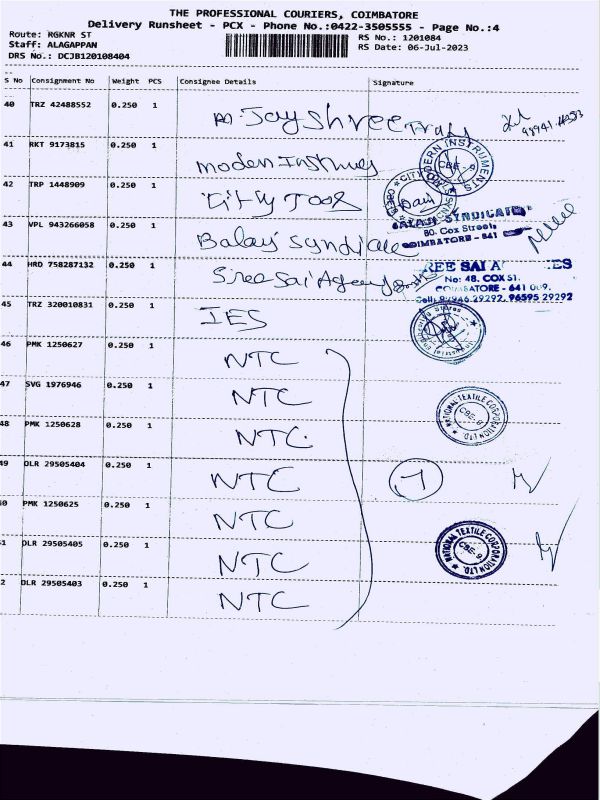 THE PROFESSIONAL COURIERS, COIMBATORE
Delivery Runsheet - PCX - Phone No.:0422-3505555 - Page No.:4
Route: RGKNR ST
RS No.: 1201084
Staff: ALAGAPPAN
RS Date: 06-Jul-2023
DRS No.: DCJB120108404
S No Consignment No Weight PCS Consignee Details Signature
40 TRZ 42488552 0.250 1 Jay Shree
41 RKT 9173815 0.250 1 Moden
MODERN INSTRUMENTS
CBE-9
42 TRP 1448909 0.250 1 City Tools
CITY
43 VPL 943266058 0.250 1 Balaji Syndicate
BALAJI SYNDICATE
80. Cox Street
COIMBATORE - 641
44 HRD 758287132 0.250 1 Sree Sai Agency
REE SAI A ES
No: 48. COX ST.
COIMBATORE - 641 009.
Cell: 97946 29292, 96595 29292
45 TRZ 320010831 0.250 1 IES
46 PMK 1250627 0.250 1 NTC
47 SVG 1976946 0.250 1 NTC
NATIONAL TEXTILE CORPORATION LTD.
CBE-9
48 PMK 1250628 0.250 1 NTC
49 DLR 29505404 0.250 1 NTC
7
50 PMK 1250625 0.250 1 NTC
NATIONAL TEXTILE CORPORATION LTD.
CBE-9
51 DLR 29505405 0.250 1 NTC
2 DLR 29505403 0.250 1 NTC